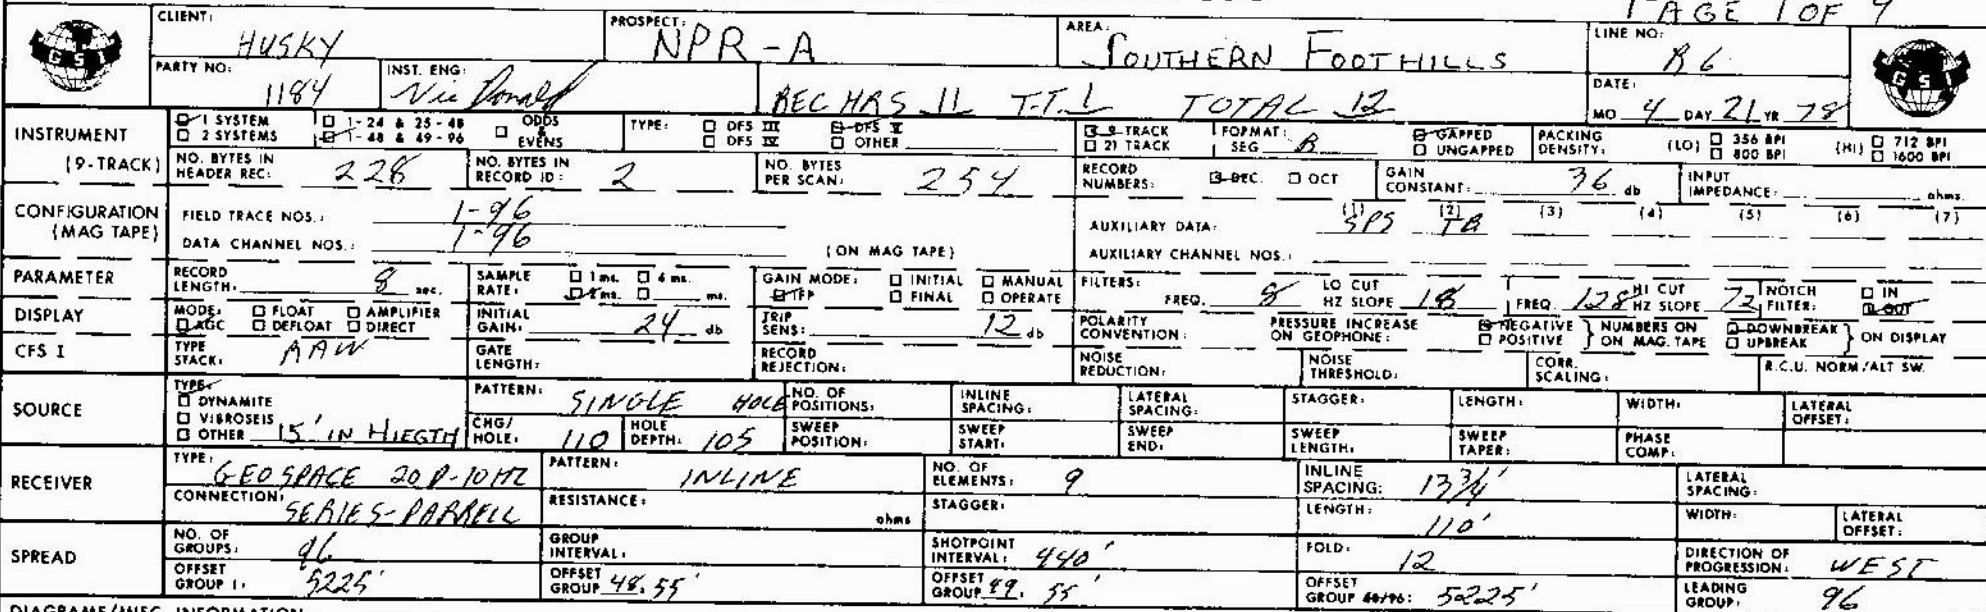 PAGE 1 OF 9
CLIENT: HUSKY PROSPECT: NPR-A AREA: SOUTHERN FOOTHILLS LINE NO: R6
GSI GSI
PARTY NO: 1184 INST. ENG: Vic Donald REC HRS 11 T.T. 1 TOTAL 12 DATE: MO 4 DAY 21 YR 78
INSTRUMENT (9-TRACK) 1 SYSTEM 1-24 & 25-48 ODDS & EVENS TYPE: DFS III DFS V 9 TRACK FORMAT: SEG B GAPPED PACKING DENSITY: (LO) 356 BPI (HI) 712 BPI
2 SYSTEMS 1-48 & 49-96 DFS IV OTHER 21 TRACK UNGAPPED 800 BPI 1600 BPI
NO. BYTES IN HEADER REC: 228 NO. BYTES IN RECORD ID: 2 NO. BYTES PER SCAN: 254 RECORD NUMBERS: DEC. OCT GAIN CONSTANT: 36 db INPUT IMPEDANCE: ohms.
CONFIGURATION (MAG TAPE) FIELD TRACE NOS.: 1-96 AUXILIARY DATA: (1) SPS (2) TB (3) (4) (5) (6) (7)
DATA CHANNEL NOS.: 1-96 (ON MAG TAPE) AUXILIARY CHANNEL NOS.:
PARAMETER RECORD LENGTH: 8 sec. SAMPLE RATE: 1 ms. 4 ms. 2 ms. ms. GAIN MODE: INITIAL MANUAL IFP FINAL OPERATE FILTERS: FREQ. 8 LO CUT HZ SLOPE 18 FREQ. 128 HI CUT HZ SLOPE 72 NOTCH FILTER: IN OUT
DISPLAY MODE: FLOAT AMPLIFIER AGC DEFLOAT DIRECT INITIAL GAIN: 24 db TRIP SENS: 12 db POLARITY CONVENTION: PRESSURE INCREASE ON GEOPHONE: NEGATIVE POSITIVE } NUMBERS ON MAG. TAPE DOWNBREAK UPBREAK } ON DISPLAY
CFS I TYPE STACK: RAW GATE LENGTH: RECORD REJECTION: NOISE REDUCTION: NOISE THRESHOLD: CORR. SCALING: R.C.U. NORM/ALT SW.
SOURCE TYPE: DYNAMITE VIBROSEIS OTHER 15' IN HIEGTH PATTERN: SINGLE HOLE NO. OF POSITIONS: INLINE SPACING: LATERAL SPACING: STAGGER: LENGTH: WIDTH: LATERAL OFFSET:
CHG/HOLE: 110 HOLE DEPTH: 105 SWEEP POSITION: SWEEP START: SWEEP END: SWEEP LENGTH: SWEEP TAPER: PHASE COMP:
RECEIVER TYPE: GEOSPACE 20 D-10HZ PATTERN: INLINE NO. OF ELEMENTS: 9 INLINE SPACING: 13 3/4' LATERAL SPACING:
CONNECTION: SERIES-PARRELL RESISTANCE: ohms STAGGER: LENGTH: 110' WIDTH: LATERAL OFFSET:
SPREAD NO. OF GROUPS: 96 GROUP INTERVAL: SHOTPOINT INTERVAL: 440' FOLD: 12 DIRECTION OF PROGRESSION: WEST
OFFSET GROUP 1: 5225' OFFSET GROUP 48: 55' OFFSET GROUP 49: 55' OFFSET GROUP 48/96: 5225' LEADING GROUP: 96
DIAGRAMS/MISC. INFORMATION